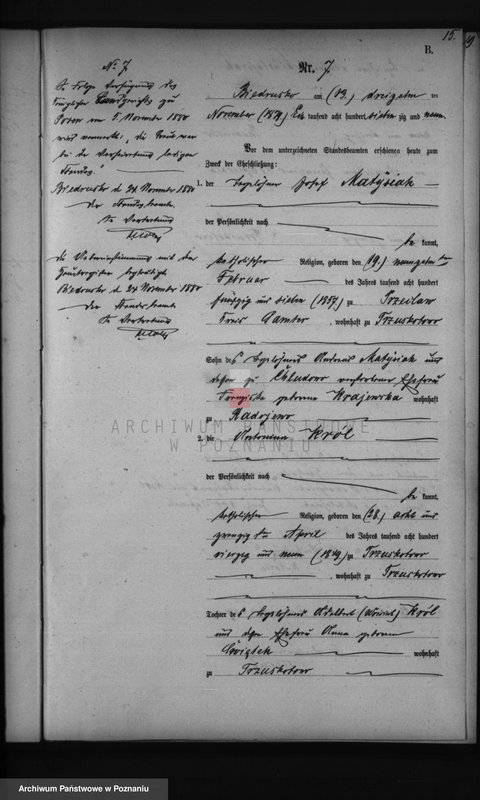 15.
B.
Nr. 7.
Biedrusko am (13.) dreizehn ten
November (1879) Ein tausend acht hundert sieben zig und neun
Vor dem unterzeichneten Standesbeamten erschienen heute zum
Zweck der Eheschließung:
1. der Tagelöhner Josef Matysiak
der Persönlichkeit nach
be kannt,
katholischer Religion, geboren den (19.) neunzehn ten
Februar des Jahres tausend acht hundert
fünfzig und sieben (1857) zu
Kreis Samter, wohnhaft zu Trzuskotowo
Sohn des Tagelöhners Andreas Matysiak und
dessen zu Chludowo verstorbener Ehefrau
Franziska geborene Krajewska wohnhaft
zu Radojewo
2. die Antonina Król
der Persönlichkeit nach
be kannt,
katholischer Religion, geboren den (28.) acht und
zwanzig ten April des Jahres tausend acht hundert
vierzig und neun (1849) zu Trzuskotowo
, wohnhaft zu Trzuskotowo
Tochter des Tagelöhners Adalbert Król
und dessen Ehefrau Anna geborene
wohnhaft
zu Trzuskotowo
No 7.
In Folge Verfügung des
Königlichen Landgerichts zu
Posen vom 5. November 1880
wird vermerkt:
Biedrusko d. 24 November 1880
Der Standesbeamte
In Vertretung
die Uebereinstimmung mit dem
Hauptregister beglaubigt
Biedrusko d. 24 November 1880
Der Standesbeamte
In Vertretung
ARCHIWUM PAŃSTWOWE
W POZNANIU
Archiwum Państwowe w Poznaniu